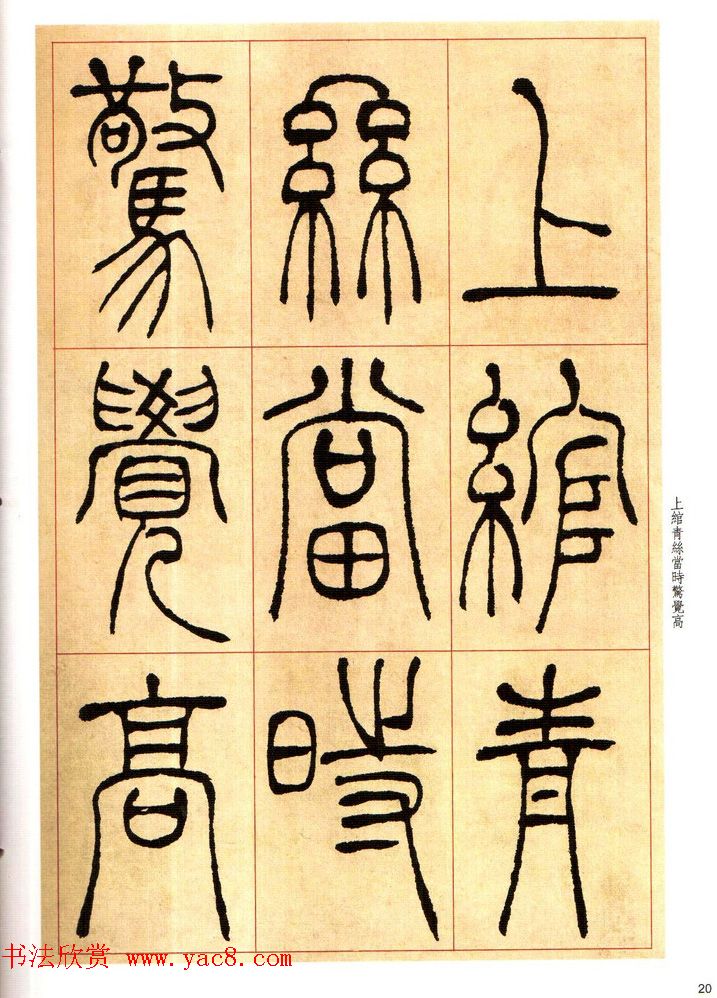 上綰青
絲當時
驚覺高
上綰青絲當時驚覺高
书法欣赏 www.yac8.com
20